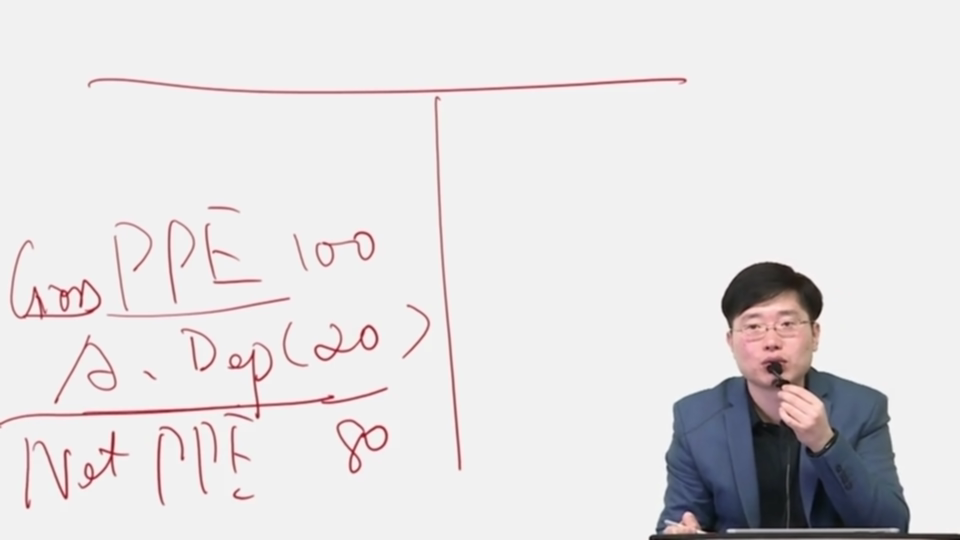 Gross PPE 100
A. Dep (20)
Net PPE 80